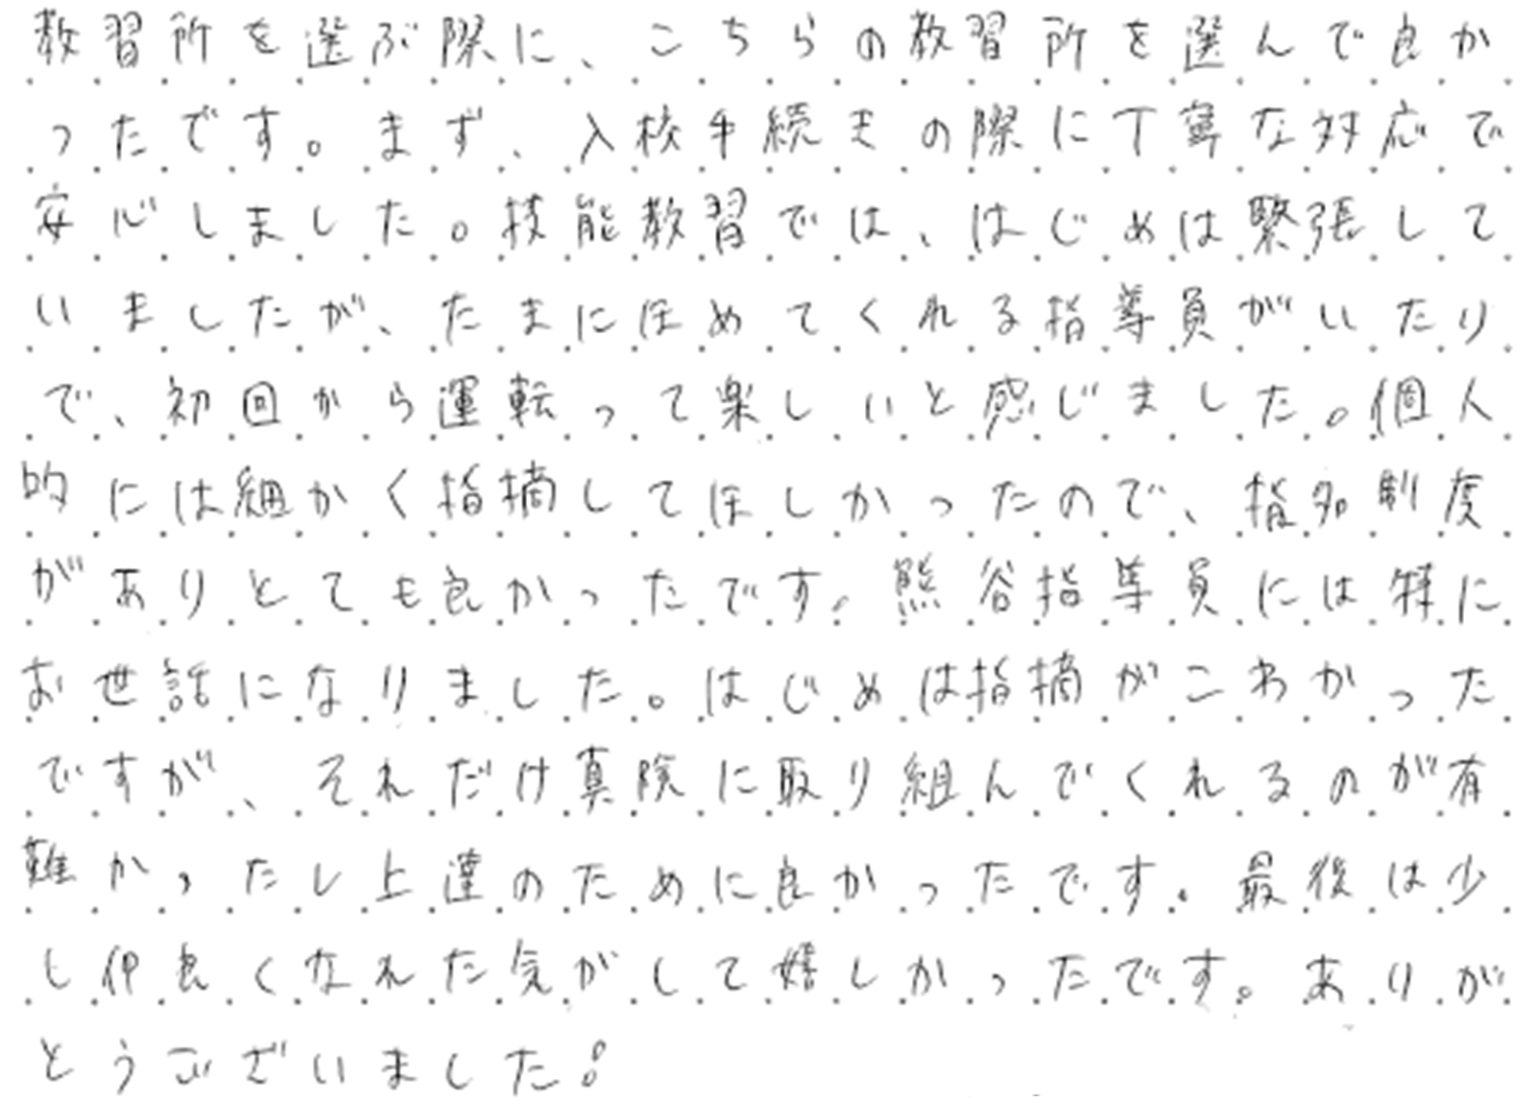 教習所を選ぶ際に、こちらの教習所を選んで良か
ったです。まず、入校手続きの際に丁寧な対応で
安心しました。技能教習では、はじめは緊張して
いましたが、たまにほめてくれる指導員がいたり
で、初回から運転って楽しいと感じました。個人
的には細かく指摘してほしかったので、指名制度
がありとても良かったです。熊谷指導員には特に
お世話になりました。はじめは指摘がこわかった
ですが、それだけ真険に取り組んでくれるのが有
難かったし上達のために良かったです。最後は少
し仲良くなれた気がして嬉しかったです。ありが
とうございました!